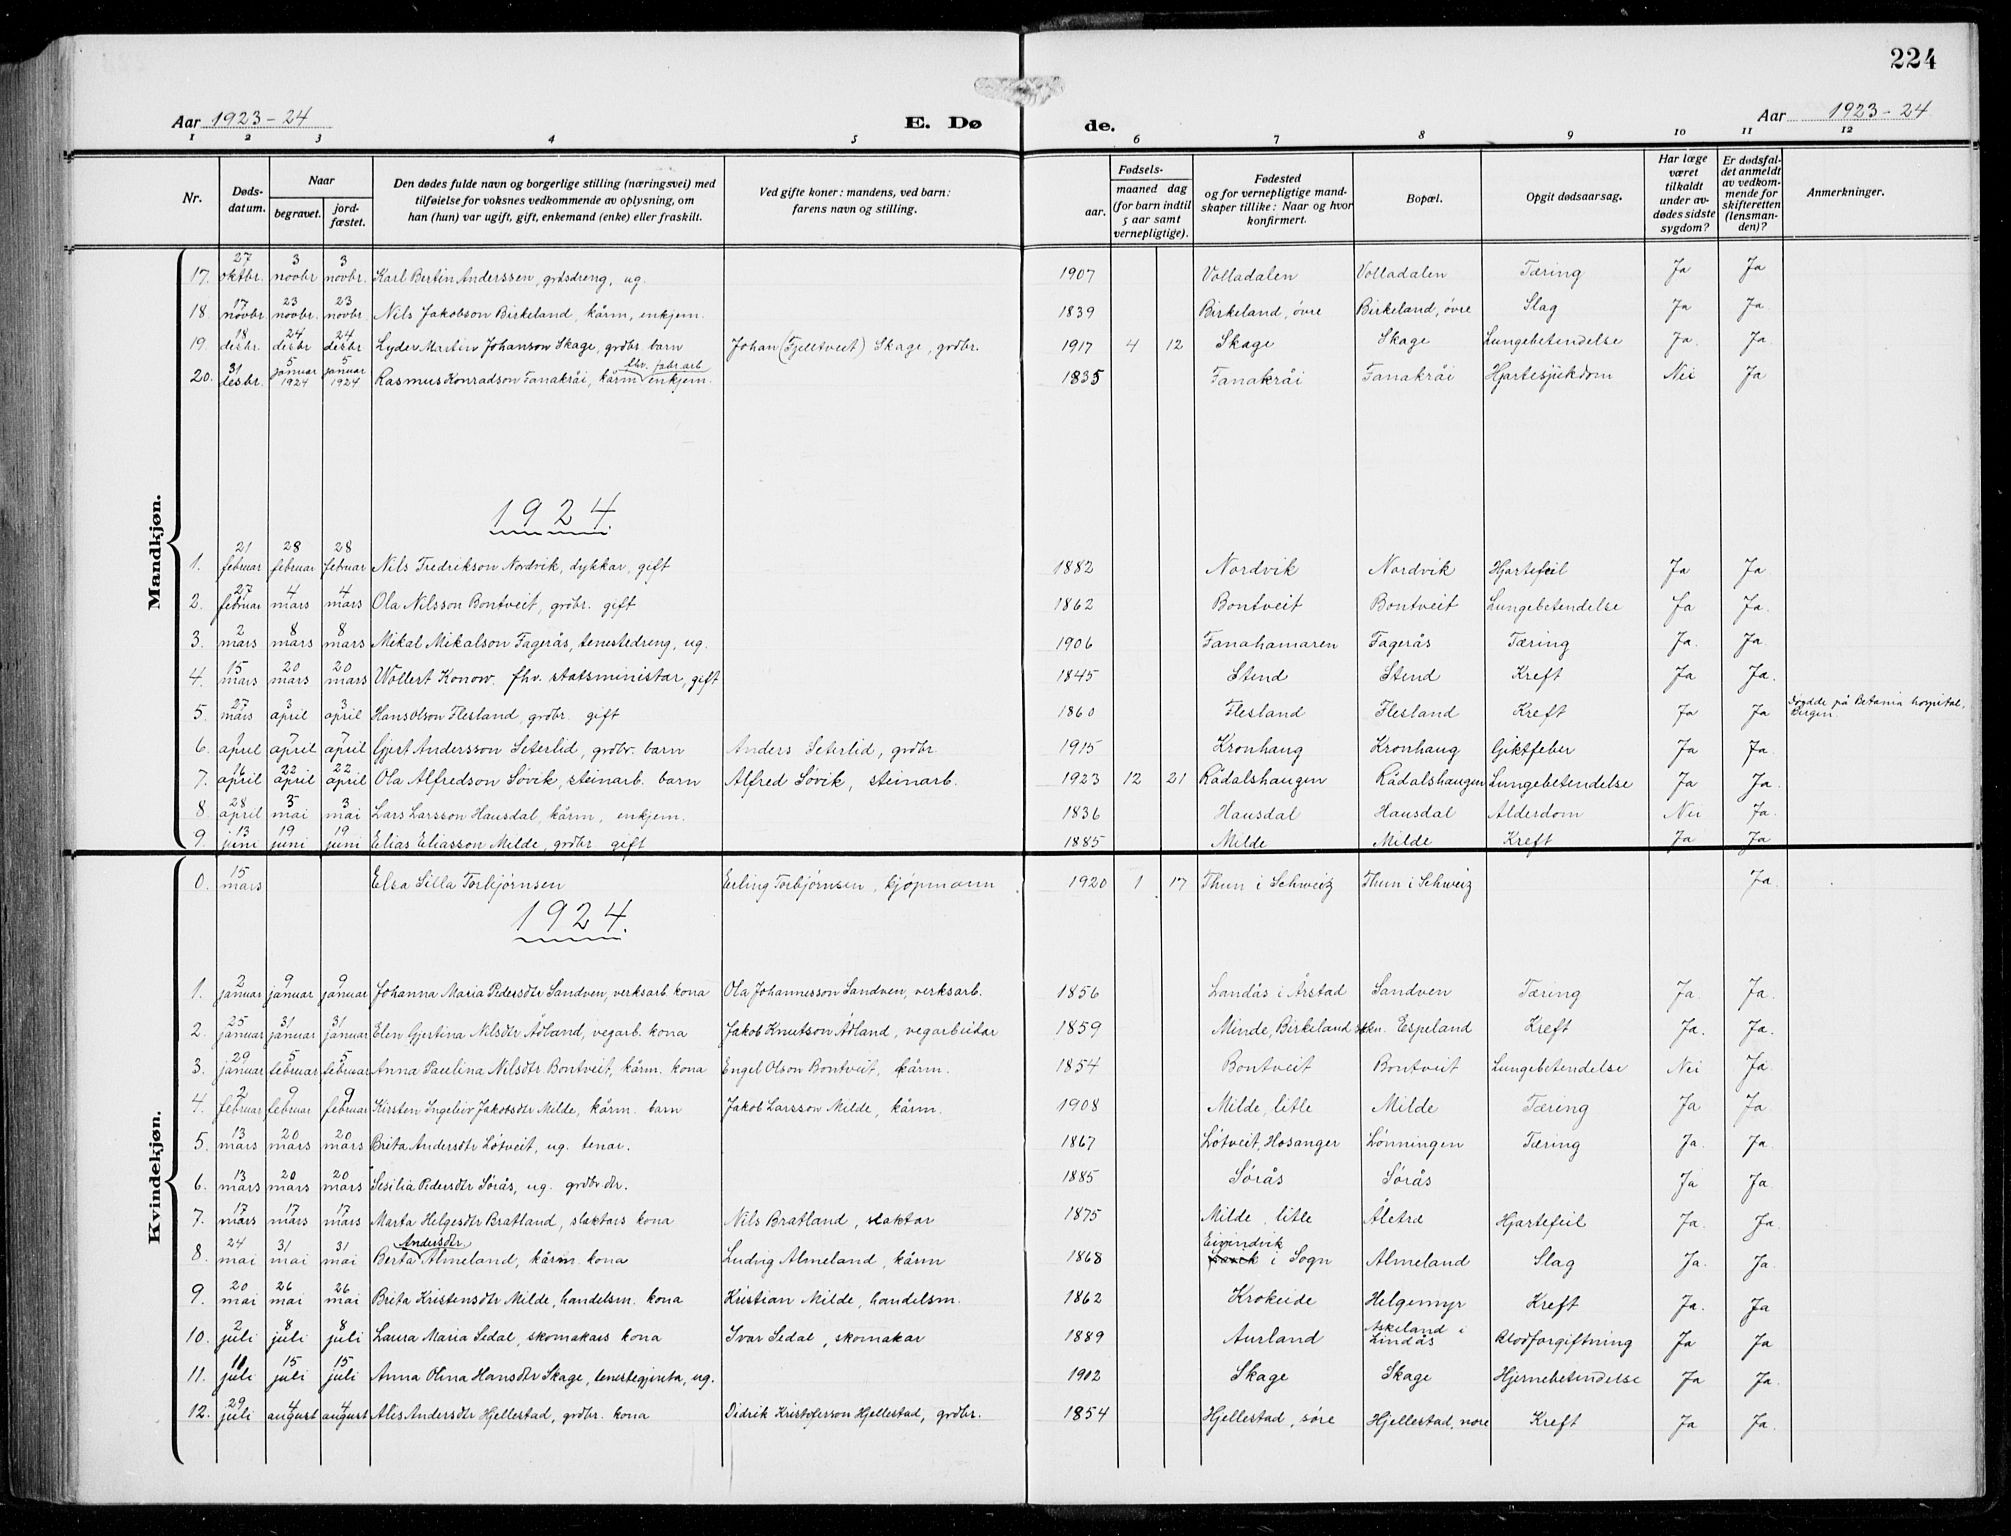 224
Aar 1923-24
E. Døde.
Aar 1923-24
1 2 3 4 5 6 7 8 9 10 11 12
Nr.
Døds-datum.
Naar
begravet.
jord-fæstet.
Den dødes fulde navn og borgerlige stilling (næringsvei) med
tilføielse for voksnes vedkommende av oplysning, om
han (hun) var ugift, gift, enkemand (enke) eller fraskilt.
Ved gifte koner: mandens, ved barn:
farens navn og stilling.
Fødsels-
aar.
maaned dag
(for barn indtil
5 aar samt
vernepligtige).
Fødested
og for vernepligtige mand-
skaper tillike: Naar og hvor
konfirmert.
Bopæl.
Opgit dødsaarsag.
Har læge
været
tilkaldt
under av-
dødes sidste
sygdom?
Er dødsfal-
det anmeldt
av vedkom-
mende for
skifteretten
(lensman-
den)?
Anmerkninger.
Mandkjøn.
17. 27 oktbr. 3 novbr 3 novbr. Karl Bertin Anderssen, grdsdreng, ug. 1907 Volladalen Volladalen Tæring Ja Ja
18. 17 novbr. 23 novbr. 23 novbr. Nils Jakobson Birkeland, kårm, enkjem. 1839 Birkeland, övre Birkeland, övre Slag Ja Ja
19. 18 desbr. 24 desbr 24 desbr Lyder Martin Johanson Skage, grdbr. barn Johan (Fjelltveit) Skage, grdbr. 1917 4 12 Skage Skage Lungebetendelse Ja. Ja.
20. 31 desbr. 5 januar 1924 5 januar 1924 Rasmus Konradson Fanakråi, kårm fhv. fabr.arb enkjem. 1835 Fanakråi Fanakråi Hjartesjukdom Nei Ja
1924.
1. 21 februar 28 februar 28 februar Nils Fredrikson Nordvik, dykkar, gift 1882 Nordvik Nordvik Hjartefeil Ja Ja
2. 27 februar 4 mars 4 mars Ola Nilsson Bontveit, grdbr. gift 1862 Bontveit Bontveit Lungebetendelse Ja Ja.
3. 2 mars 8 mars 8 mars Mikal Mikalson Fagerås, tenestedreng, ug. 1906 Fanahamaren Fagerås Tæring Ja. Ja.
4. 15 mars 20 mars 20 mars Wollert Konow. fhv. statsministar, gift 1845 Stend Stend Kreft Ja Ja.
5. 27 mars 3 april 3 april Hans Olson Flesland, grdbr. gift 1860 Flesland Flesland Kreft Ja Ja Dödde på Betania hospital, Bergen.
6. 1 april 7 april 7 april Gjert Andersson Seterlid, grdbr. barn Anders Seterlid, grdbr. 1915 Kronhaug Kronhaug Giktfeber Ja Ja.
7. 16 april 22 april 22 april Ola Alfredson Sövik, steinarb. barn Alfred Sövik, steinarb. 1923 12 21 Rådalshaugen Rådalshaugen Lungebetendelse Ja Ja.
8 28 april 3 mai 3 mai Lars Larsson Hausdal, kårm, enkjem. 1836 Hausdal Hausdal Alderdom Nei Ja.
9. 13 juni 19 juni 19 juni Elias Eliasson Milde, grdbr gift 1885 Milde Milde Kreft Ja Ja
Kvindekjøn.
0. 15 mars Elsa Silla Torbjørnsen Erling Torbjørnsen, kjøpmann 1920 1 17 Thun i Schweiz Thun i Schweiz Ja.
1924.
1. 2 januar 9 januar 9 januar Johanna Maria Pedersdtr Sandven, verksarb. kona Ola Johannesson Sandven, verksarb. 1856 Landås i Årstad Sandven Tæring Ja. Ja.
2. 25 januar 31 januar 31 januar Elen Gjertina Nilsdtr Ådland, vegarb. kona Jakob Knutson Ådland, vegarbeidar 1859 Minde, Birkeland skn. Espeland Kreft Ja. Ja.
3. 29 januar 5 februar 5 februar Anna Paulina Nilsdtr Bontveit, kårm. kona Engel Olson Bontveit, kårm. 1854 Bontveit Bontveit Lungebetendelse Nei Ja.
4. 2 februar 9 februar 9 februar Kirsten Ingeleiv Jakobsdtr Milde, kårm. barn Jakob Larsson Milde, kårm. 1908 Milde, litle Milde Tæring Ja Ja
5. 13 mars 20 mars 20 mars Brita Andersdtr Lötveit, ug. tenar. 1867 Lötveit, Hosanger Lönningen Tæring Ja. Ja.
6. 13 mars 20 mars 20 mars Sesilia Pedersdtr Sörås, ug. grdbr dtr. 1885 Sörås Sörås Ja Ja.
7. 17 mars 17 mars 17 mars Marta Helgesdtr Bratland, slaktars kona Nils Bratland, slaktar 1875 Milde, litle Åletræ Hjartefeil Ja. Ja.
8. 24 mai 31 mai 31 mai Berta Andersdtr Almeland, kårm. kona Ludvig Almeland, kårm 1868 Eivindvik i Sogn Almeland Slag Ja. Ja.
9. 20 mai 26 mai 26 mai Brita Kristensdtr Milde, handelsm. kona Kristian Milde, handelsm. 1862 Krokeide Helgemyr Kreft Ja. Ja
10. 2 juli 8 juli 8 juli Laura Maria Sedal, skomakars kona Ivar Sedal, skomakar 1889 Aurland Askeland i Lindås Blodforgiftning Ja Ja
11. 10 juli 15 juli 15 juli Anna Olina Hansdtr Skage, tenestegjenta, ug. 1902 Skage Skage Hjernebetendelse Ja Ja.
12. 29 juli 4 august 4 august Alis Andersdtr Hjellestad, grdbr. kona Didrik Kristofferson Hjellestad, grdbr. 1854 Hjellestad, söre Hjellestad, nore Kreft Ja Ja.